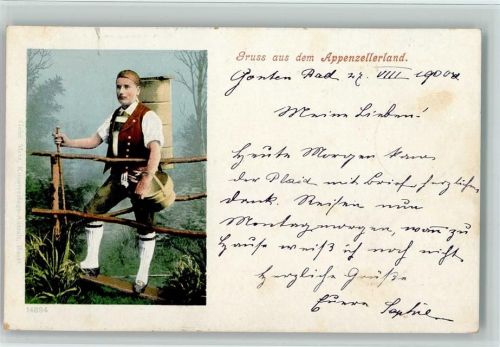 Gruss aus dem Appenzellerland.
Gonten Bad 27. VIII 1900
Meine Lieben!
Heute Morgen kam
der Plaid mit Brief, herzlichen
dank. Reisen nun
Montag morgen, wan zu
Hause weiß ich noch nicht
Herzliche Grüße
Euere Sophie
14894